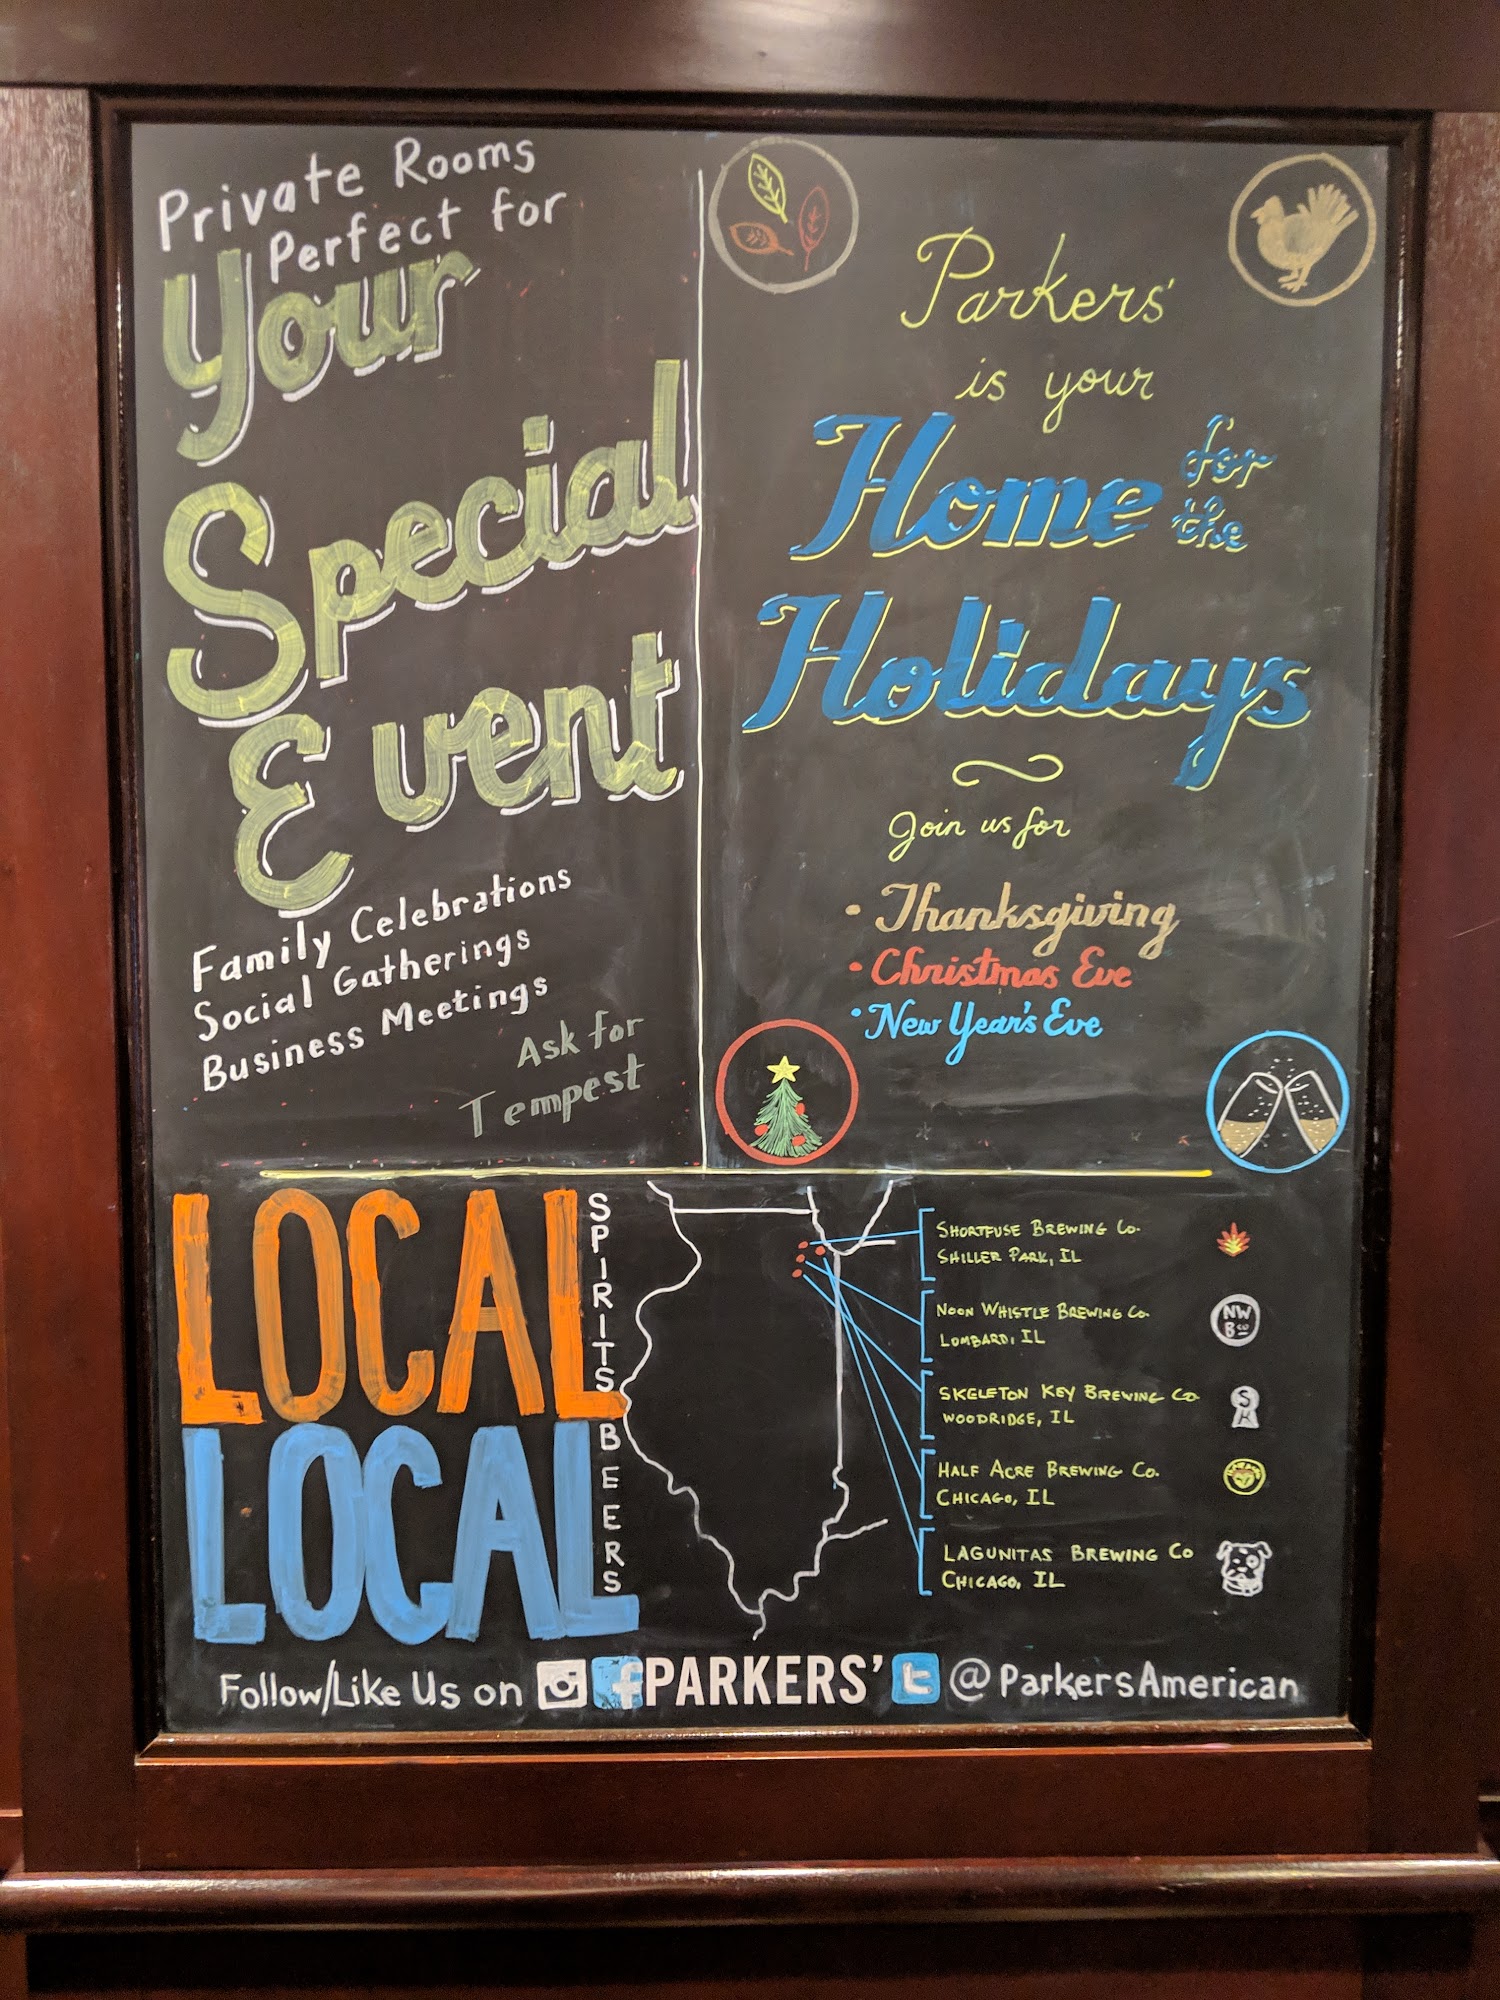 Private Rooms
Perfect for
Your
Special
Event
Family Celebrations
Social Gatherings
Business Meetings
Ask for
Tempest
Parkers'
is your
Home for the
Holidays
Join us for
• Thanksgiving
• Christmas Eve
• New Year's Eve
LOCAL
LOCAL
SPIRITS
BEERS
SHORTFUSE BREWING CO.
SHILLER PARK, IL
NOON WHISTLE BREWING CO.
LOMBARD, IL
NW
B CO
SKELETON KEY BREWING CO
WOODRIDGE, IL
SK
HALF ACRE BREWING CO.
CHICAGO, IL
LAGUNITAS BREWING CO
CHICAGO, IL
Follow/Like Us on f PARKERS' t @ParkersAmerican